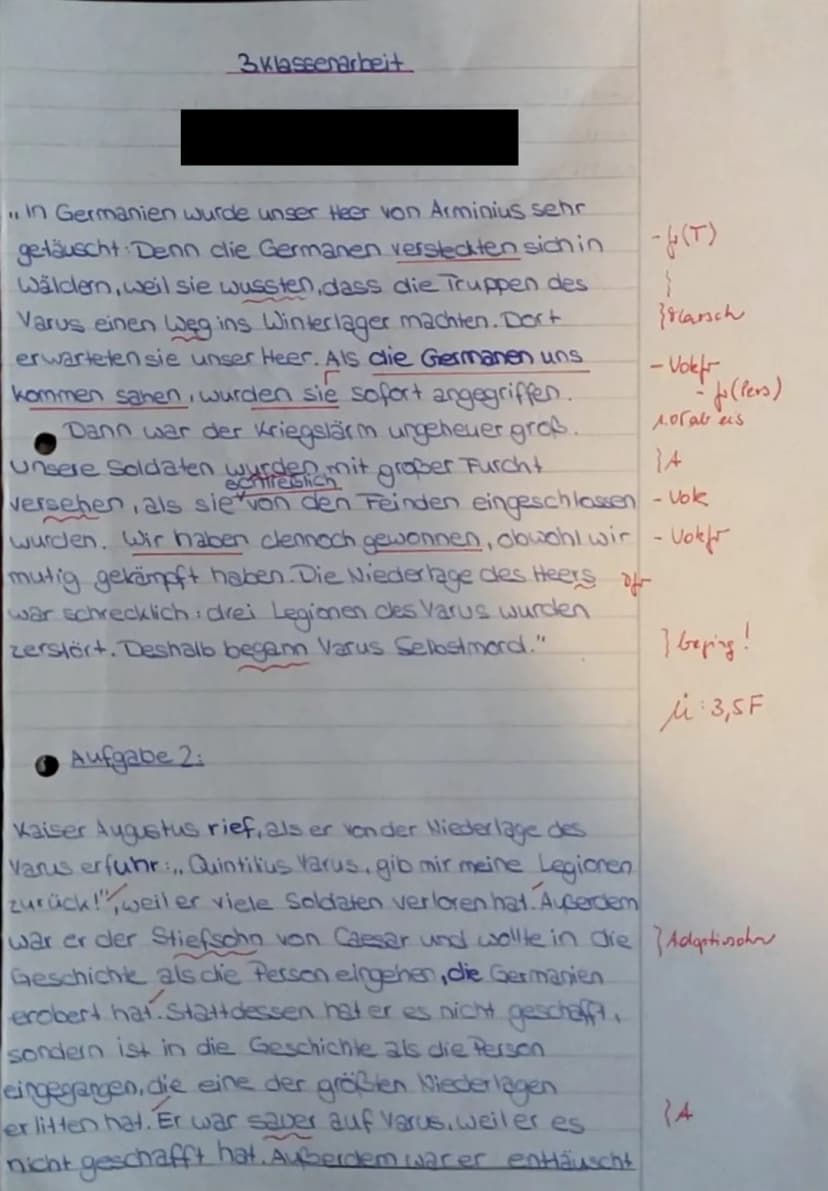 3 Klassenarbeit
„In Germanien wurde unser Heer von Arminius sehr
getäuscht: Denn die Germanen versteckten sich in - f(T)
Wäldern, weil sie wussten, dass die Truppen des }
Varus einen Weg ins Winterlager machten. Dort }Marsch
erwarteten sie unser Heer. Als die Germanen uns - Vokfr
kommen sahen, wurden sie sofort angegriffen. - f(Pers)
Dann war der Kriegslärm ungeheuer groß.
Unsere Soldaten wurden mit großer Furcht }A
versehen, als sie von den Feinden eingeschlossen - Vok
wurden. Wir haben dennoch gewonnen, obwohl wir - Vokfr
mutig gekämpft haben. Die Niederlage des Heers
war schrecklich: drei Legionen des Varus wurden
zerstört. Deshalb begann Varus Selbstmord." } beging!
: 3,5F
Aufgabe 2:
Kaiser Augustus rief, als er von der Niederlage des
Varus erfuhr: „Quintilius Varus, gib mir meine Legionen
zurück!", weil er viele Soldaten verloren hat. Außerdem
war er der Stiefsohn von Caesar und wollte in die }Adoptivsohn
Geschichte als die Person eingehen, die Germanien
erobert hat. Stattdessen hat er es nicht geschafft,
sondern ist in die Geschichte als die Person
eingegangen, die eine der größten Niederlagen
erlitten hat. Er war sauer auf Varus, weil er es }A
nicht geschafft hat. Außerdem war er enttäuscht